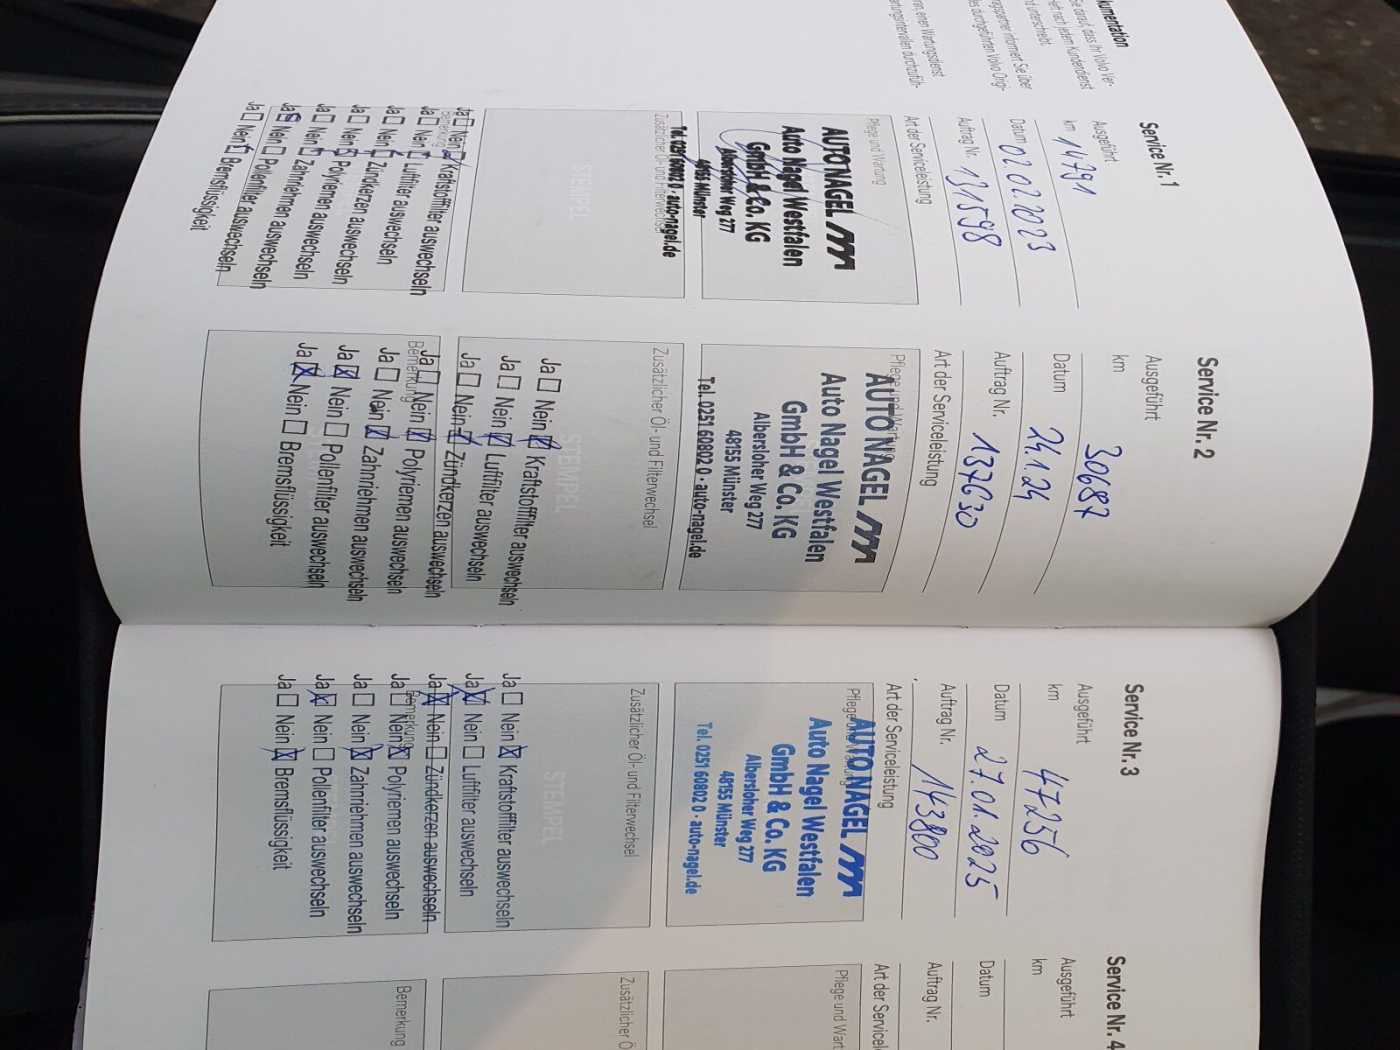 kumentation
Sie darauf, dass Ihr Volvo Ver-
heft nach jedem Kundendienst
nd unterschreibt.
ngspartner informiert Sie über
les durchgeführten Volvo Origi-
nn, einen Wartungsdienst
artungsintervallen durchzufüh-
Service Nr. 1
Ausgeführt
km 14791
Datum 02.02.2023
Auftrag Nr. 131598
Art der Serviceleistung
Pflege und Wartung
AUTO NAGEL
Auto Nagel Westfalen
GmbH & Co. KG
Albersloher Weg 277
48155 Münster
Tel. 0251 60802 0 · auto-nagel.de
Zusätzlicher Öl- und Filterwechsel
STEMPEL
Bemerkung
Ja ☐ Nein ☒ Kraftstofffilter auswechseln
Ja ☐ Nein ☒ Luftfilter auswechseln
Ja ☐ Nein ☒ Zündkerzen auswechseln
Ja ☐ Nein ☒ Polyriemen auswechseln
Ja ☐ Nein ☒ Zahnriehmen auswechseln
Ja ☒ Nein ☐ Pollenfilter auswechseln
Ja ☐ Nein ☒ Bremsflüssigkeit
Service Nr. 2
Ausgeführt
km 30687
Datum 24.1.24
Auftrag Nr. 137630
Art der Serviceleistung
Pflege und Wartung
AUTO NAGEL
Auto Nagel Westfalen
GmbH & Co. KG
Albersloher Weg 277
48155 Münster
Tel. 0251 60802 0 · auto-nagel.de
Zusätzlicher Öl- und Filterwechsel
STEMPEL
Ja ☐ Nein ☒ Kraftstofffilter auswechseln
Ja ☐ Nein ☒ Luftfilter auswechseln
Ja ☐ Nein ☒ Zündkerzen auswechseln
Bemerkung
Ja ☐ Nein ☒ Polyriemen auswechseln
Ja ☐ Nein ☒ Zahnriehmen auswechseln
Ja ☒ Nein ☐ Pollenfilter auswechseln
Ja ☒ Nein ☐ Bremsflüssigkeit
Service Nr. 3
Ausgeführt
km 47256
Datum 27.01.2025
Auftrag Nr. 143800
Art der Serviceleistung
Pflege und Wartung
AUTO NAGEL
Auto Nagel Westfalen
GmbH & Co. KG
Albersloher Weg 277
48155 Münster
Tel. 0251 60802 0 · auto-nagel.de
Zusätzlicher Öl- und Filterwechsel
STEMPEL
Ja ☐ Nein ☒ Kraftstofffilter auswechseln
Ja ☒ Nein ☐ Luftfilter auswechseln
Ja ☒ Nein ☐ Zündkerzen auswechseln
Bemerkung
Ja ☐ Nein ☒ Polyriemen auswechseln
Ja ☐ Nein ☒ Zahnriehmen auswechseln
Ja ☒ Nein ☐ Pollenfilter auswechseln
Ja ☐ Nein ☒ Bremsflüssigkeit
Service Nr. 4
Ausgeführt
km
Datum
Auftrag Nr.
Art der Servicel
Pflege und Wart
Zusätzlicher Ö
Bemerkung